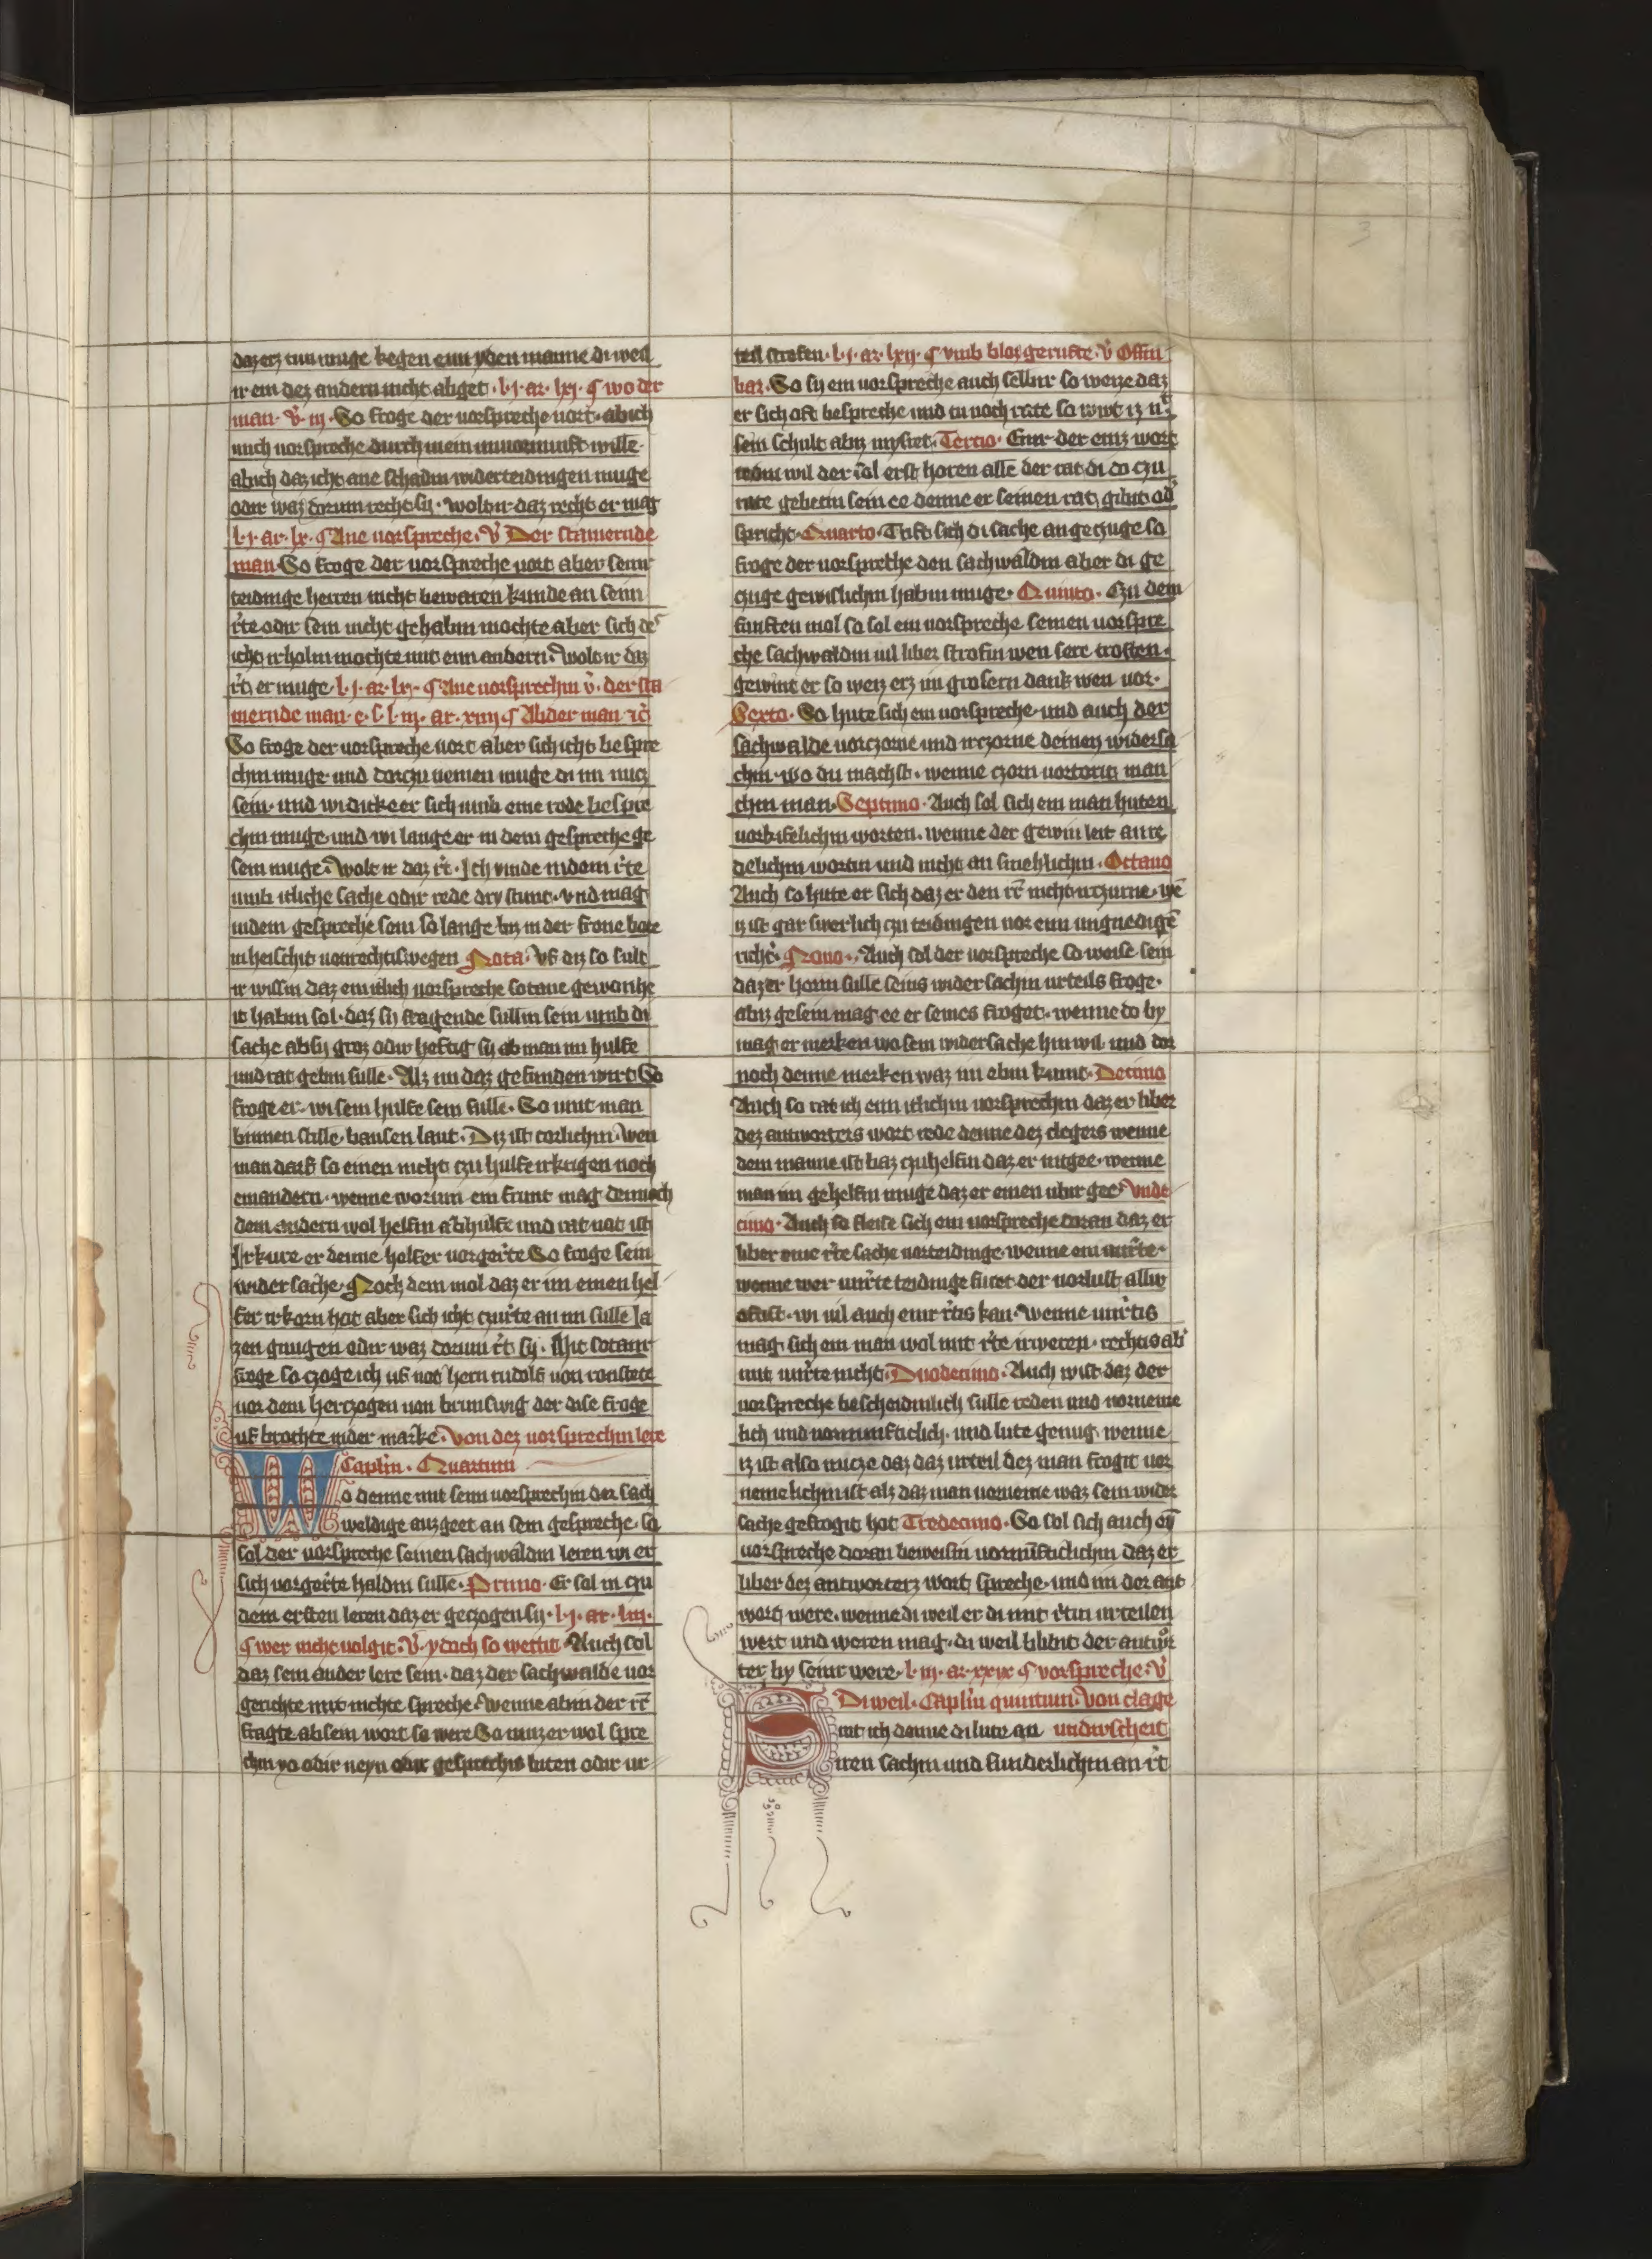 daz erz tun muge kegen eynn yden manne di weil
ir ein dez andern nicht abget · l· j· ar· lxj· ¶ wo der
man· v̓· iij· So froge der vorspreche vort· ab ich
mich vorspreche durch mein unvornunft wille·
ab ich daz icht ane schadin widerteidingen muge
odir waz dorum recht sy· wolt ir daz recht er mag
l· j· ar· lx· ¶ Ane vorspreche· v̓ Der stamernde
man So froge der vorspreche vort aber seinr
teidinge herren nicht bewaren kunde an seinn
r̓te odir sein nicht gehabin mochte aber sich des
icht irholin mochte mit einn andern· Wolt ir daz
r̓t er muge· l· j· ar· lx· ¶ Ane vorsprechin v̓· der sta
mernde man· e· l· iij· ar· xiiij ¶ Ab der man ⁊c̓
So froge der vorspreche vort aber sich icht bespre
chin muge und dorczu nemen muge di im nucz
sein· und wi dicke er sich umb eine rede bespre
chin muge· und wi lange er in dem gespreche ge
sein muge· Wolt ir daz r̓t· Ich vinde in dem r̓te
umb itliche sache odir rede dry stunt· und mag
in dem gespreche sein so lange biz in der frone bote
in heischit von rechtiswegen Nota· Vf diz so sult
ir wissin daz ein itlich vorspreche sotane gewonhe
it habin sol· daz sy fragende sullin sein umb di
sache ab sy groz odir heftig sy ab man im hulfe
und rat gebin sulle· Alz im daz gefunden wirt So
froge er· wi sein hulfe sein sulle· So vint man
binnen stille· bausen laut· Diz ist torlichin· Wen
man darf so einen nicht czu hulfe irkrigen noch
einandern· wenne worum ein frunt mag dennoch
dem andern wol helfin ab hulfe und rat not ist
Irkure er denne helfer vorger̓te So froge sein
widersache· Noch dem mol daz er im einen hel
fer irkorn hot aber sich icht czur̓te an im sulle la
zen gnugen odir waz dorum r̓t sy· Mit sotanr
froge so czoge ich uf not hern rudolf von ronstete
vor dem herczogen von brunswig der dise froge
uf brochte in der marke· Von dez vorsprechin lere
Caplm̓· Quartum
Wo denne mit seinn vorsprechin der sach
weldige auzgeet an sein gespreche· so
sol der vorspreche seinen sachwaldin leren wi er
sich vorger̓te haldin sulle· Primo· Er sol in czu
dem ersten leren daz er geczogen sy· l· ij· ar· liij·
¶ wer nicht volgit· v̓· ydoch so wettit Auch sol
daz sein ander lere sein· daz der sachwalde vor
gerichte mit nichte spreche· Wenne abin der r̓r
fragte ab sein wort so were So muz er wol spre
chin yo odir neyn odir gesprechis biten odir ur
teil strofen· l· j· ar· lxij· ¶ vmb bloz gerufte· v̓ Offin
bar· So sy ein vorspreche auch selbir so weize daz
er sich oft bespreche und tu noch rate so wirt iz nit
sein schult abiz mysset· Tercio· Einr der einz wort
redin wil der sol erst horen alle der rat di do czu
rate gebetin sein ee denne er seinen rat gibit od̓
spricht· Quarto· Trift sich di sache an geczuge so
froge der vorspreche den sachwaldin aber di ge
czuge gewislichin habin muge· Quinto· Czu dem
funften mol so sol ein vorspreche seinen vorspre
che sachwaldin vil liber strofin wen sere trosten·
gewint er so weiz erz im grosern dank wen vor·
Sexto· So hute sich ein vorspreche· und auch der
sachwalde vorczorne und irczorne deinen widersa
chin· wo du machst· wenne czorn vortorit man
chin man· Septimo· Auch sol sich ein man huten
vorbiselichin worten· wenne der gewin leit an re
delichin wortin und nicht an smehlichin· Octauo
Auch so hute er sich daz er den r̓r nicht irczurne· wē
iz ist gar swerlich czu teidingen vor einn ungnedigē
richt̓· Nono· Auch sol der vorspreche so weise sein
daz er horin sulle seins widersachin urteils froge·
abiz gesein mag ee er seines froget· wenne do by
mag er merken wo sein widersache hin wil und dor
noch denne merken waz im ebin kumt· Decimo
Auch so rat ich einn itlichin vorsprechin daz er liber
dez antworters wort rede denne dez clegers wenne
dem manne ist baz czuhelfin daz er intgee· wenne
man im gehelfin muge daz er einen ubir gee· Vnde
cimo· Auch so fleise sich ein vorspreche doran daz er
liber eine r̓te sache vorteidinge· wenne ein unr̓te·
wenne wer unr̓te teidinge furet der vorlust allir
ofist· wi vil auch einr r̓tis kan· Wenne unr̓tis
mag sich ein man wol mit r̓te irweren· rechtis ab̓
mit unr̓te nicht· Duodecimo· Auch wist daz der
vorspreche bescheidinlich sulle reden und vorneme
lich und vornunfticlich· und lute genug· wenne
iz ist also nucze daz daz urteil dez man frogit vor
nemelichin ist alz daz man verneme waz sein wider
sache gefrogit hot Tredecimo· So sol sich auch eȳ
vorspreche doran beweisin vornūfticlichin daz er
liber dez antworterz wort spreche· und im der ant
wort were· wenne di weil er di mit r̓tin urteilen
wert und weren mag· di weil blibit der antwor
ter by seinr were· l· iij· ar· xxix ¶ vorspreche· v̓
Di weil· Caplm̓ quintum· Von clage
Rat ich denne di lute an undirscheit
iren sachin und sunderlichin an r̓t